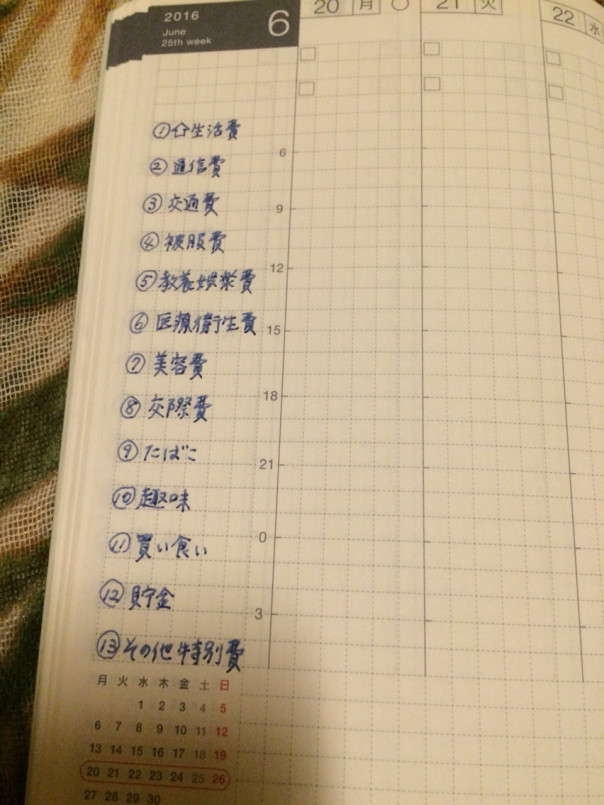 2016
June
25th week
6
20 月
21 火
22 水
①生活費
②通信費
③交通費
④被服費
⑤教養娯楽費
⑥医療衛生費
⑦美容費
⑧交際費
⑨たばこ
⑩趣味
⑪買い食い
⑫貯金
⑬その他特別費
6
9
12
15
18
21
0
3
月 火 水 木 金 土 日
1 2 3 4 5
6 7 8 9 10 11 12
13 14 15 16 17 18 19
20 21 22 23 24 25 26
27 28 29 30